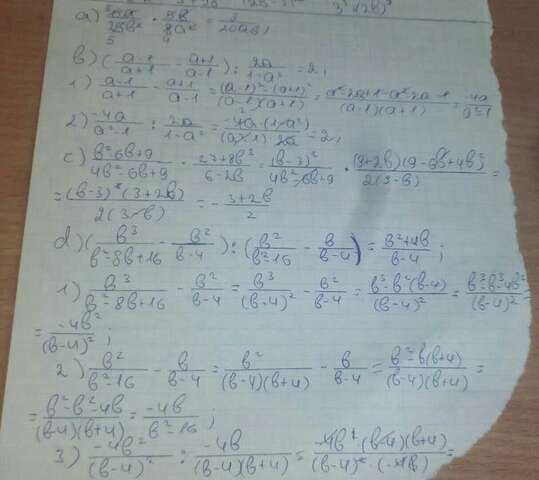 a) 6a/25b² · 5b/8a² = 3/20ab;
b) (a-1/a+1 - a+1/a-1) : 2a/1-a² = 2;
1) a-1/a+1 - a+1/a-1 = (a-1)²-(a+1)²/(a-1)(a+1) = a²-2a+1-a²-2a-1/(a-1)(a+1) = -4a/a²-1
2) -4a/a²-1 : 2a/1-a² = -4a·(1-a²)/(a²-1)·2a = 2;
c) b²-6b+9/4b²-6b+9 · 27+8b³/6-2b = (b-3)²/4b²-6b+9 · (3+2b)(9-6b+4b²)/2(3-b) =
= (b-3)²(3+2b)/2(3-b) = - 3+2b/2
d) (b³/b²-8b+16 - b²/b-4) : (b²/b²-16 - b/b-4) = b²+4b/b-4;
1) b³/b²-8b+16 - b²/b-4 = b³/(b-4)² - b²/b-4 = b³-b²(b-4)/(b-4)² = b³-b³-4b²/(b-4)² =
= -4b²/(b-4)²;
2) b²/b²-16 - b/b-4 = b²/(b-4)(b+4) - b/b-4 = b²-b(b+4)/(b-4)(b+4) =
= b²-b²-4b/(b-4)(b+4) = -4b/b²-16;
3) -4b²/(b-4)² : -4b/(b-4)(b+4) = -4b²(b-4)(b+4)/(b-4)²·(-4b) =